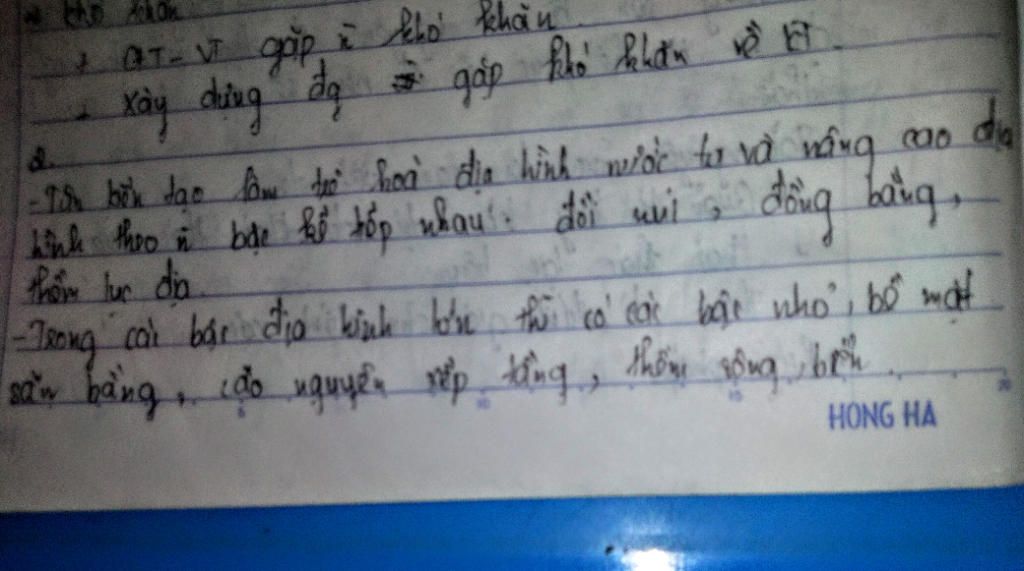 * khó khăn
+ GT-VT gặp ñ khó khăn.
+ xây dựng đg gặp khó khăn về KT.
2.
- Tân kiến tạo làm trẻ hoá địa hình nước ta và nâng cao địa
hình theo ñ bậc kế tiếp nhau: đồi núi, đồng bằng,
thềm lục địa.
- Trong các bậc địa hình lớn thì có các bậc nhỏ, bề mặt
san bằng, cao nguyên xếp tầng, thềm sông, biển.
5 10 15 20
HONG HA